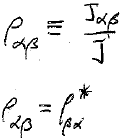 ρ_{αβ} ≡ J_{αβ} / J
ρ_{αβ} = ρ_{βα}^*